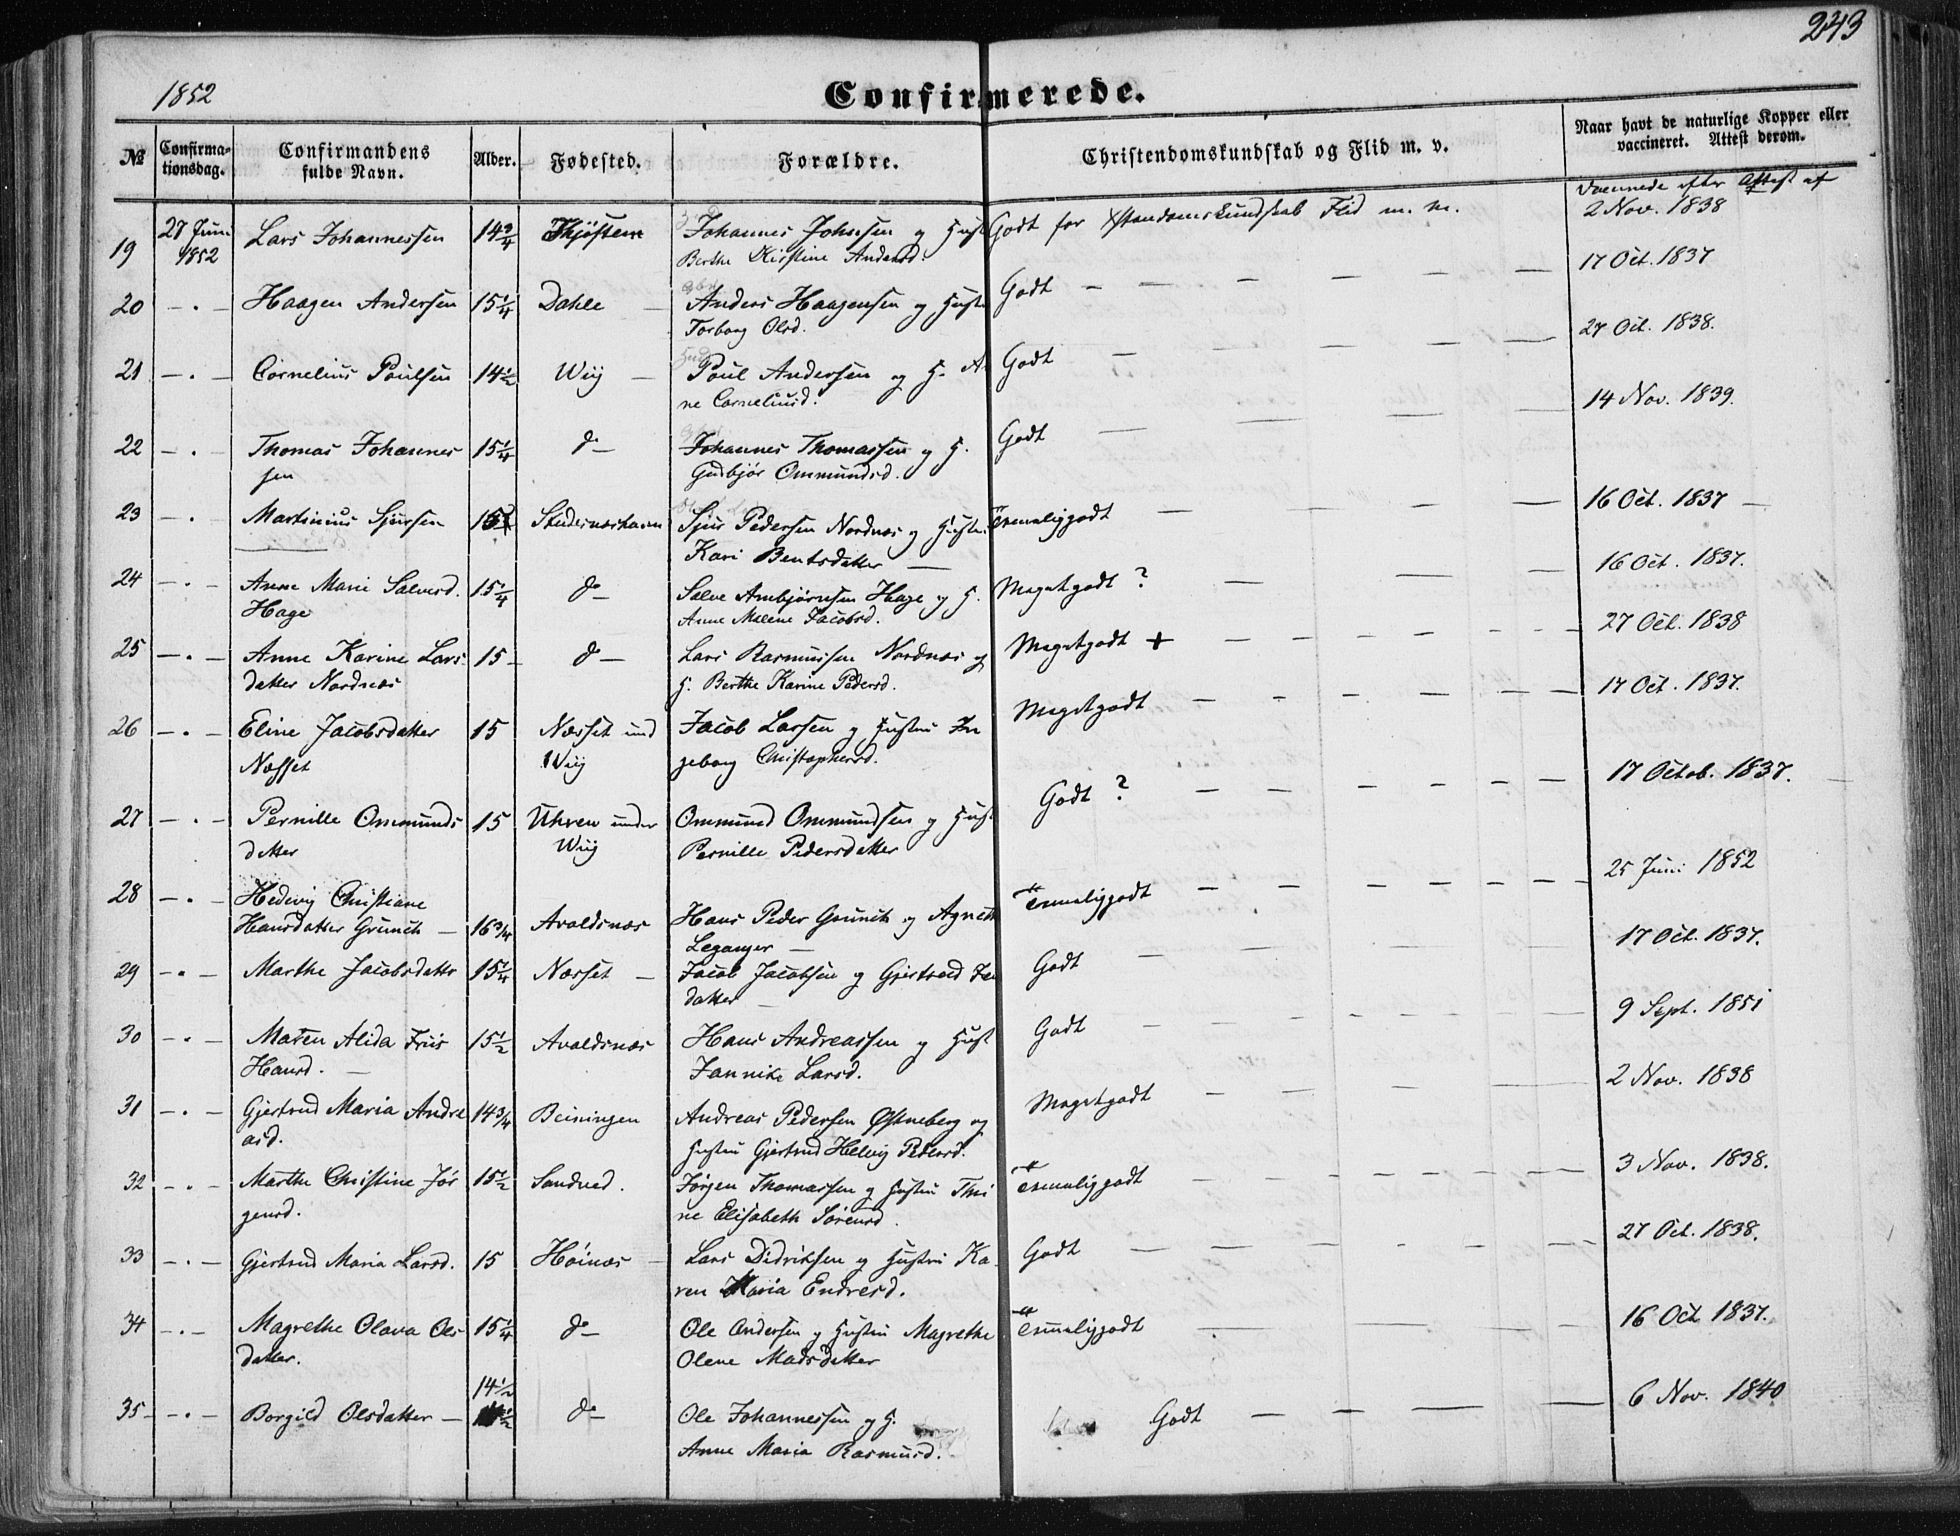 243
1852
Confirmerede.
№ Confirma-tionsdag. Confirmandens fulde Navn. Alder. Fødested. Forældre. Christendomskundskab og Flid m. v. Naar havt de naturlige Kopper eller vaccineret. Attest derom.
efter Attest af
19 27 Juni 1852 Lars Johannessen 14 3/4 Johannes Johnsen og Hust Godt for Flid m. m. 2 Nov. 1838
Berthe Kirstine Andersd.
20 - " - Haagen Andersen 15 1/4 Dahle Anders Haagensen og Hust Godt 17 Oct. 1837
Torborg Olsd.
21 - " - Cornelius Poulsen 14 1/2 Wiig Poul Andersen og H. A Godt 27 Oct. 1838.
ne Corneliusd.
22 - " - Thomas Johannes 15 1/4 do Johannes Thomassen og H. Godt 14 Nov. 1839.
sen Gudbjør Ommundsd.
23 - " - Martinius Sjursen Sjur Pedersen Nordnæs og Hustr. Temeliggodt 16 Oct. 1837
Kari Bentsdatter
24 - " - Anne Marie Salvesd. 15 1/4 do Salve Arnbjørnsen Hage og H. Megetgodt ? 16 Oct. 1837.
Hage Anne Malene Jacobsd.
25 - " - Anne Karine Lars 15 do Lars Rasmussen Nordnæs og Megetgodt + 27 Oct. 1838
datter Nordnæs H. Berthe Karine Pedersd.
26 - " - Eline Jacobsdatter 15 Næsset und Jacob Larsen og Hustru In Megetgodt 17 Oct. 1837.
Næsset Wiig geborg Christophersd.
27 - " - Pernille Ommunds 15 Uhren under Ommund Ommundsen og Hust Godt ? 17 Octob. 1837.
datter Wiig Pernille Pedersdatter
28 - " - Hedevig Christiane
Hansdatter Grunch 16 3/4 Avaldsnæs Hans Peder Grunch og Agneth Temeliggodt 25 Juni 1852
Leganger
29 - " - Marthe Jacobsdatter 15 1/4 Næsset Jacob Jacobsen og Gjertrud Godt 17 Oct. 1837.
datter
30 - " - Maren Alida Friis 15 1/2 Avaldsnæs Hans Andreassen og Hust Godt 9 Sept. 1851
Hansd. Jannike Larsd.
31 - " - Gjertrud Maria Andre 14 3/4 Beiningen Andreas Pedersen Østneberg og Megetgodt 2 Nov. 1838
asd. Hustru Gjertrud Helvig Pedersd.
32 - " - Marthe Christine Jør 15 1/2 Sandved. Jørgen Thomassen og Hustru Thi Temeliggodt 3 Nov. 1838.
gensd. ne Elisabeth Sørensd.
33 - " - Gjertrud Maria Larsd. 15 Høinæs Lars Didriksen og Hustru Ka Godt 27 Oct. 1838.
ren Maria Endresd.
34 - " - Magrethe Olava Ols 15 1/4 do Ole Andersen og Hustru Magrethe Temeliggodt 16 Oct 1837.
datter. Olene Madsdatter
14 1/2
35 - " - Borgild Olsdatter do Ole Johannessen og H. Godt 6 Nov. 1840
Anne Maria Rasmusd.